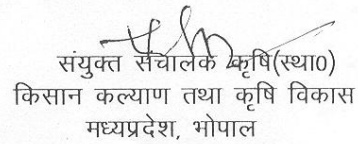 संयुक्त संचालक कृषि(स्था0)
किसान कल्याण तथा कृषि विकास
मध्यप्रदेश, भोपाल